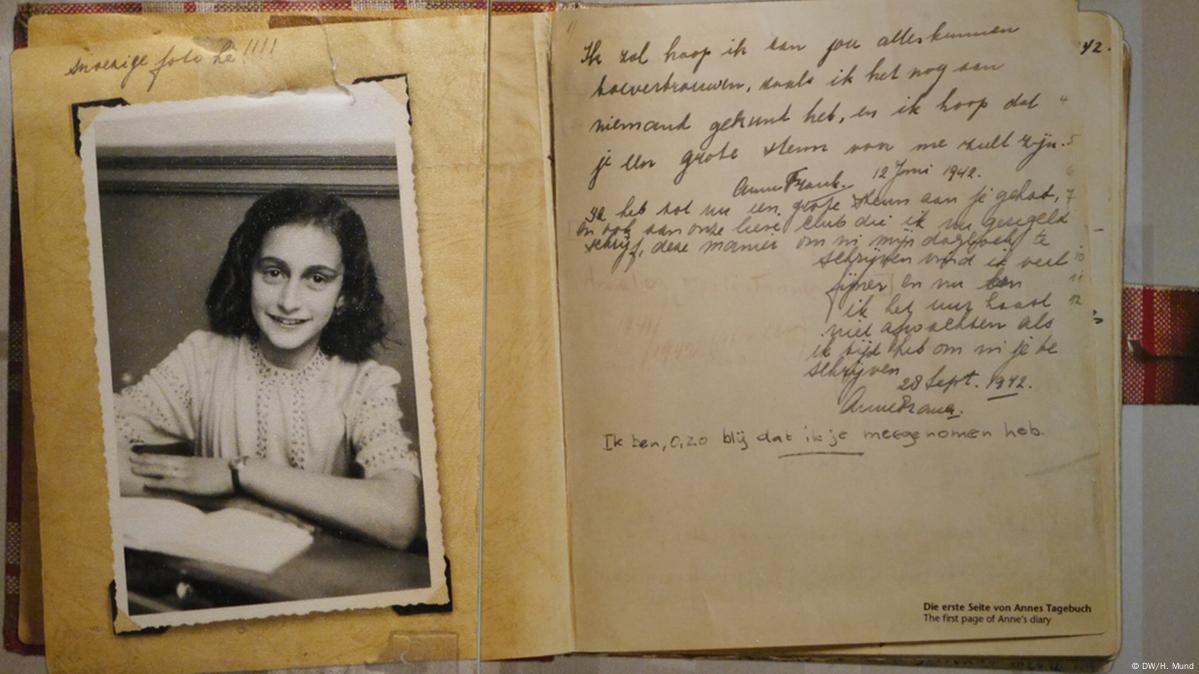 snoezige foto hè !!!!
42.
Ik zal hoop ik aan jou alles kunnen
toevertrouwen, zoals ik het nog aan
niemand gekund heb, en ik hoop dat
je een grote steun voor me zult zijn.
Anne Frank. 12 Juni 1942.
Ik heb tot nu een grote steun aan je gehad,
en ook aan onze lieve club die ik nu geregeld
schrijf, deze manier om in mijn dagboek te
schrijven vind ik veel
fijner en nu
ik het uur haast
niet afwachten als
ik tijd heb om in je te
schrijven
28 Sept. 1942.
Anne Frank.
Ik ben, O, zo blij dat ik je meegenomen heb.
Die erste Seite von Annes Tagebuch
The first page of Anne's diary
© DW/H. Mund